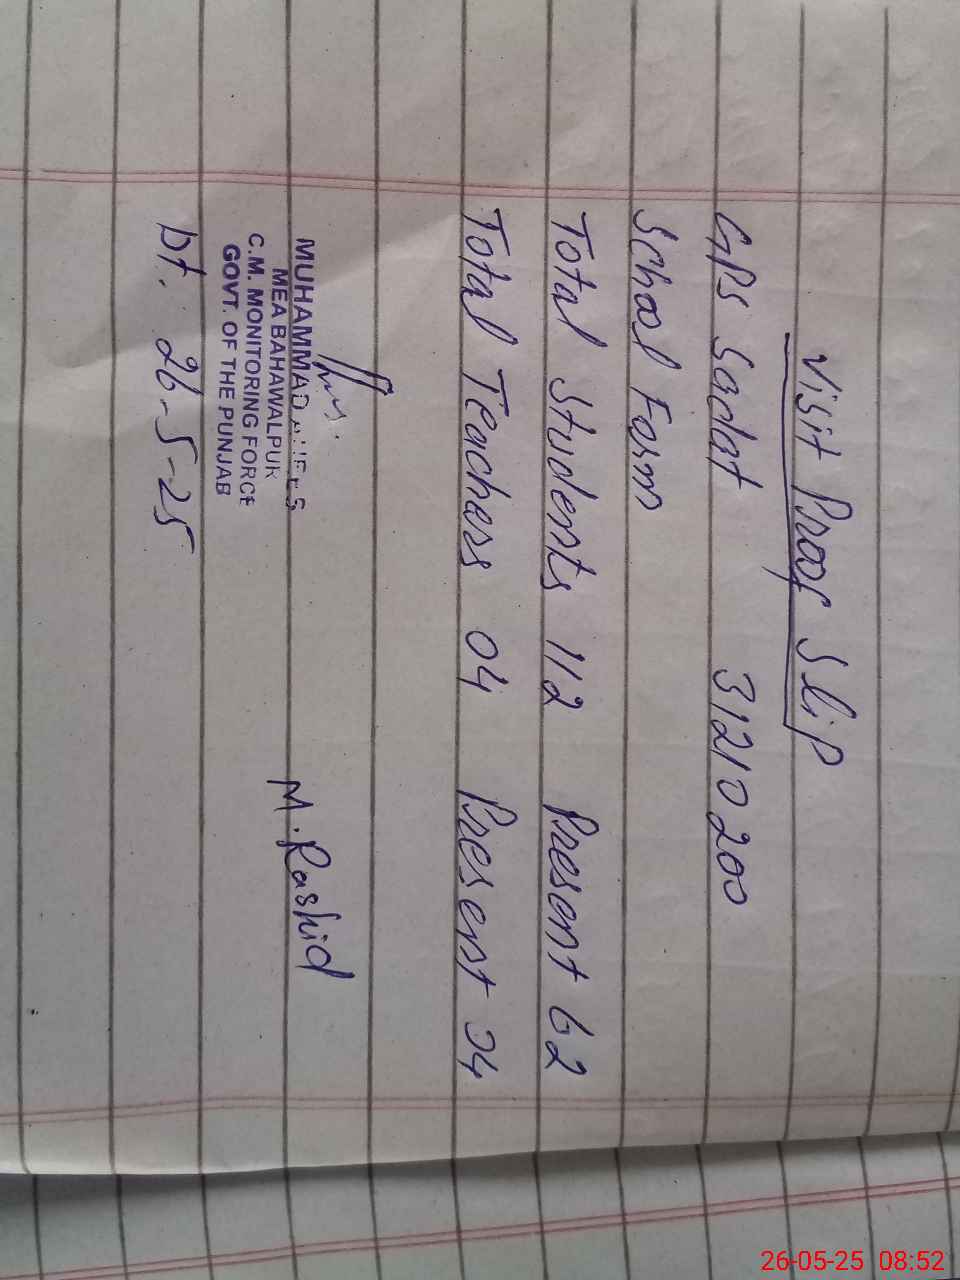 Visit Proof Slip
GPS Sadat 31210200
School Form
Total Students 112 Present 62
Total Teachers 04 Present 04
M. Rashid
MUHAMMAD
MEA BAHAWALPUR
C.M. MONITORING FORCE
GOVT. OF THE PUNJAB
Dt. 26-5-25
26-05-25 08:52